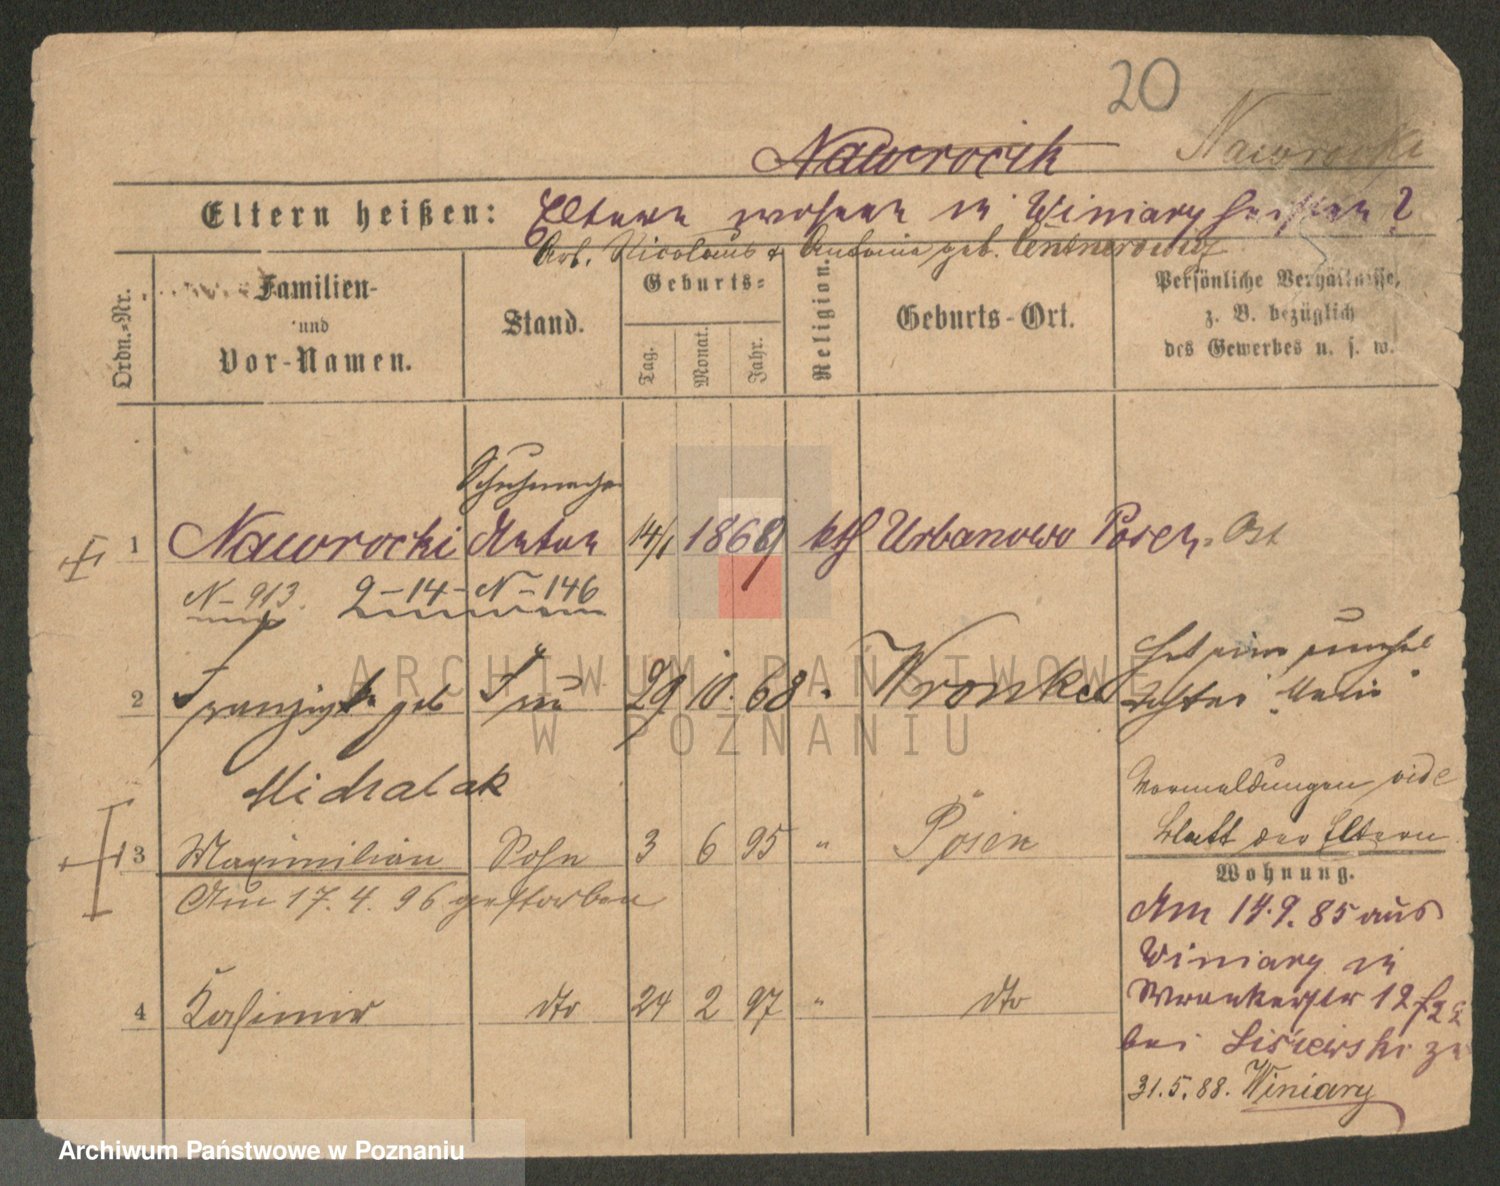 20
Nawrocik Nawrocki
Eltern heißen: Eltern wohnen in Winiary heißen?
Arb. Nicolaus & Antonie geb. Centnerowicz
Ordn.-Nr.
Familien-
und
Vor-Namen.
Stand.
Geburts-
Tag. Monat. Jahr.
Religion.
Geburts-Ort.
Persönliche Verhältnisse,
z. B. bezüglich
des Gewerbes u. s. w.
Schuhmacher
1 Nawrocki Anton 14/1 1869 kth Urbanowo Posen Ost
N-913. 9-14-N-146
2 Franziska geb Frau 29 10. 68 " Wronke
Michalak
Hat eine
Tochter "Marie"
Vormeldungen vide
Blatt der Eltern
3 Maximilian Sohn 3 6 95 " Posen
Am 17.4.96 gestorben
4 Kasimir dto 24 2 97 " dto
Wohnung.
Am 14.9.85 aus
Winiary in
Wronkerstr 12
bei Lisiewski zu
31.5.88. Winiary
ARCHIWUM PAŃSTWOWE
W POZNANIU
Archiwum Państwowe w Poznaniu